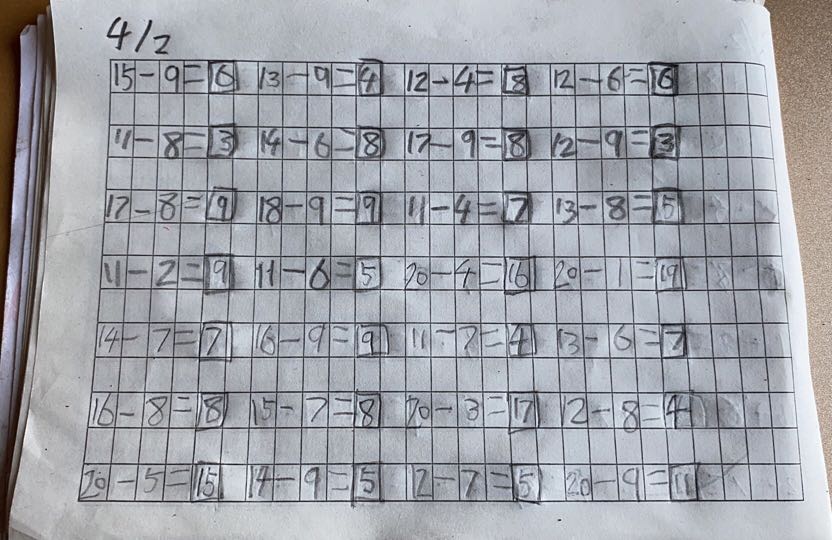 4/2
15-9=6 13-9=4 12-4=8 12-6=6
11-8=3 14-6=8 17-9=8 12-9=3
17-8=9 18-9=9 11-4=7 13-8=5
11-2=9 11-6=5 20-4=16 20-1=19
14-7=7 16-9=9 11-7=4 13-6=7
16-8=8 15-7=8 20-3=17 12-8=4
20-5=15 14-9=5 12-7=5 20-9=11